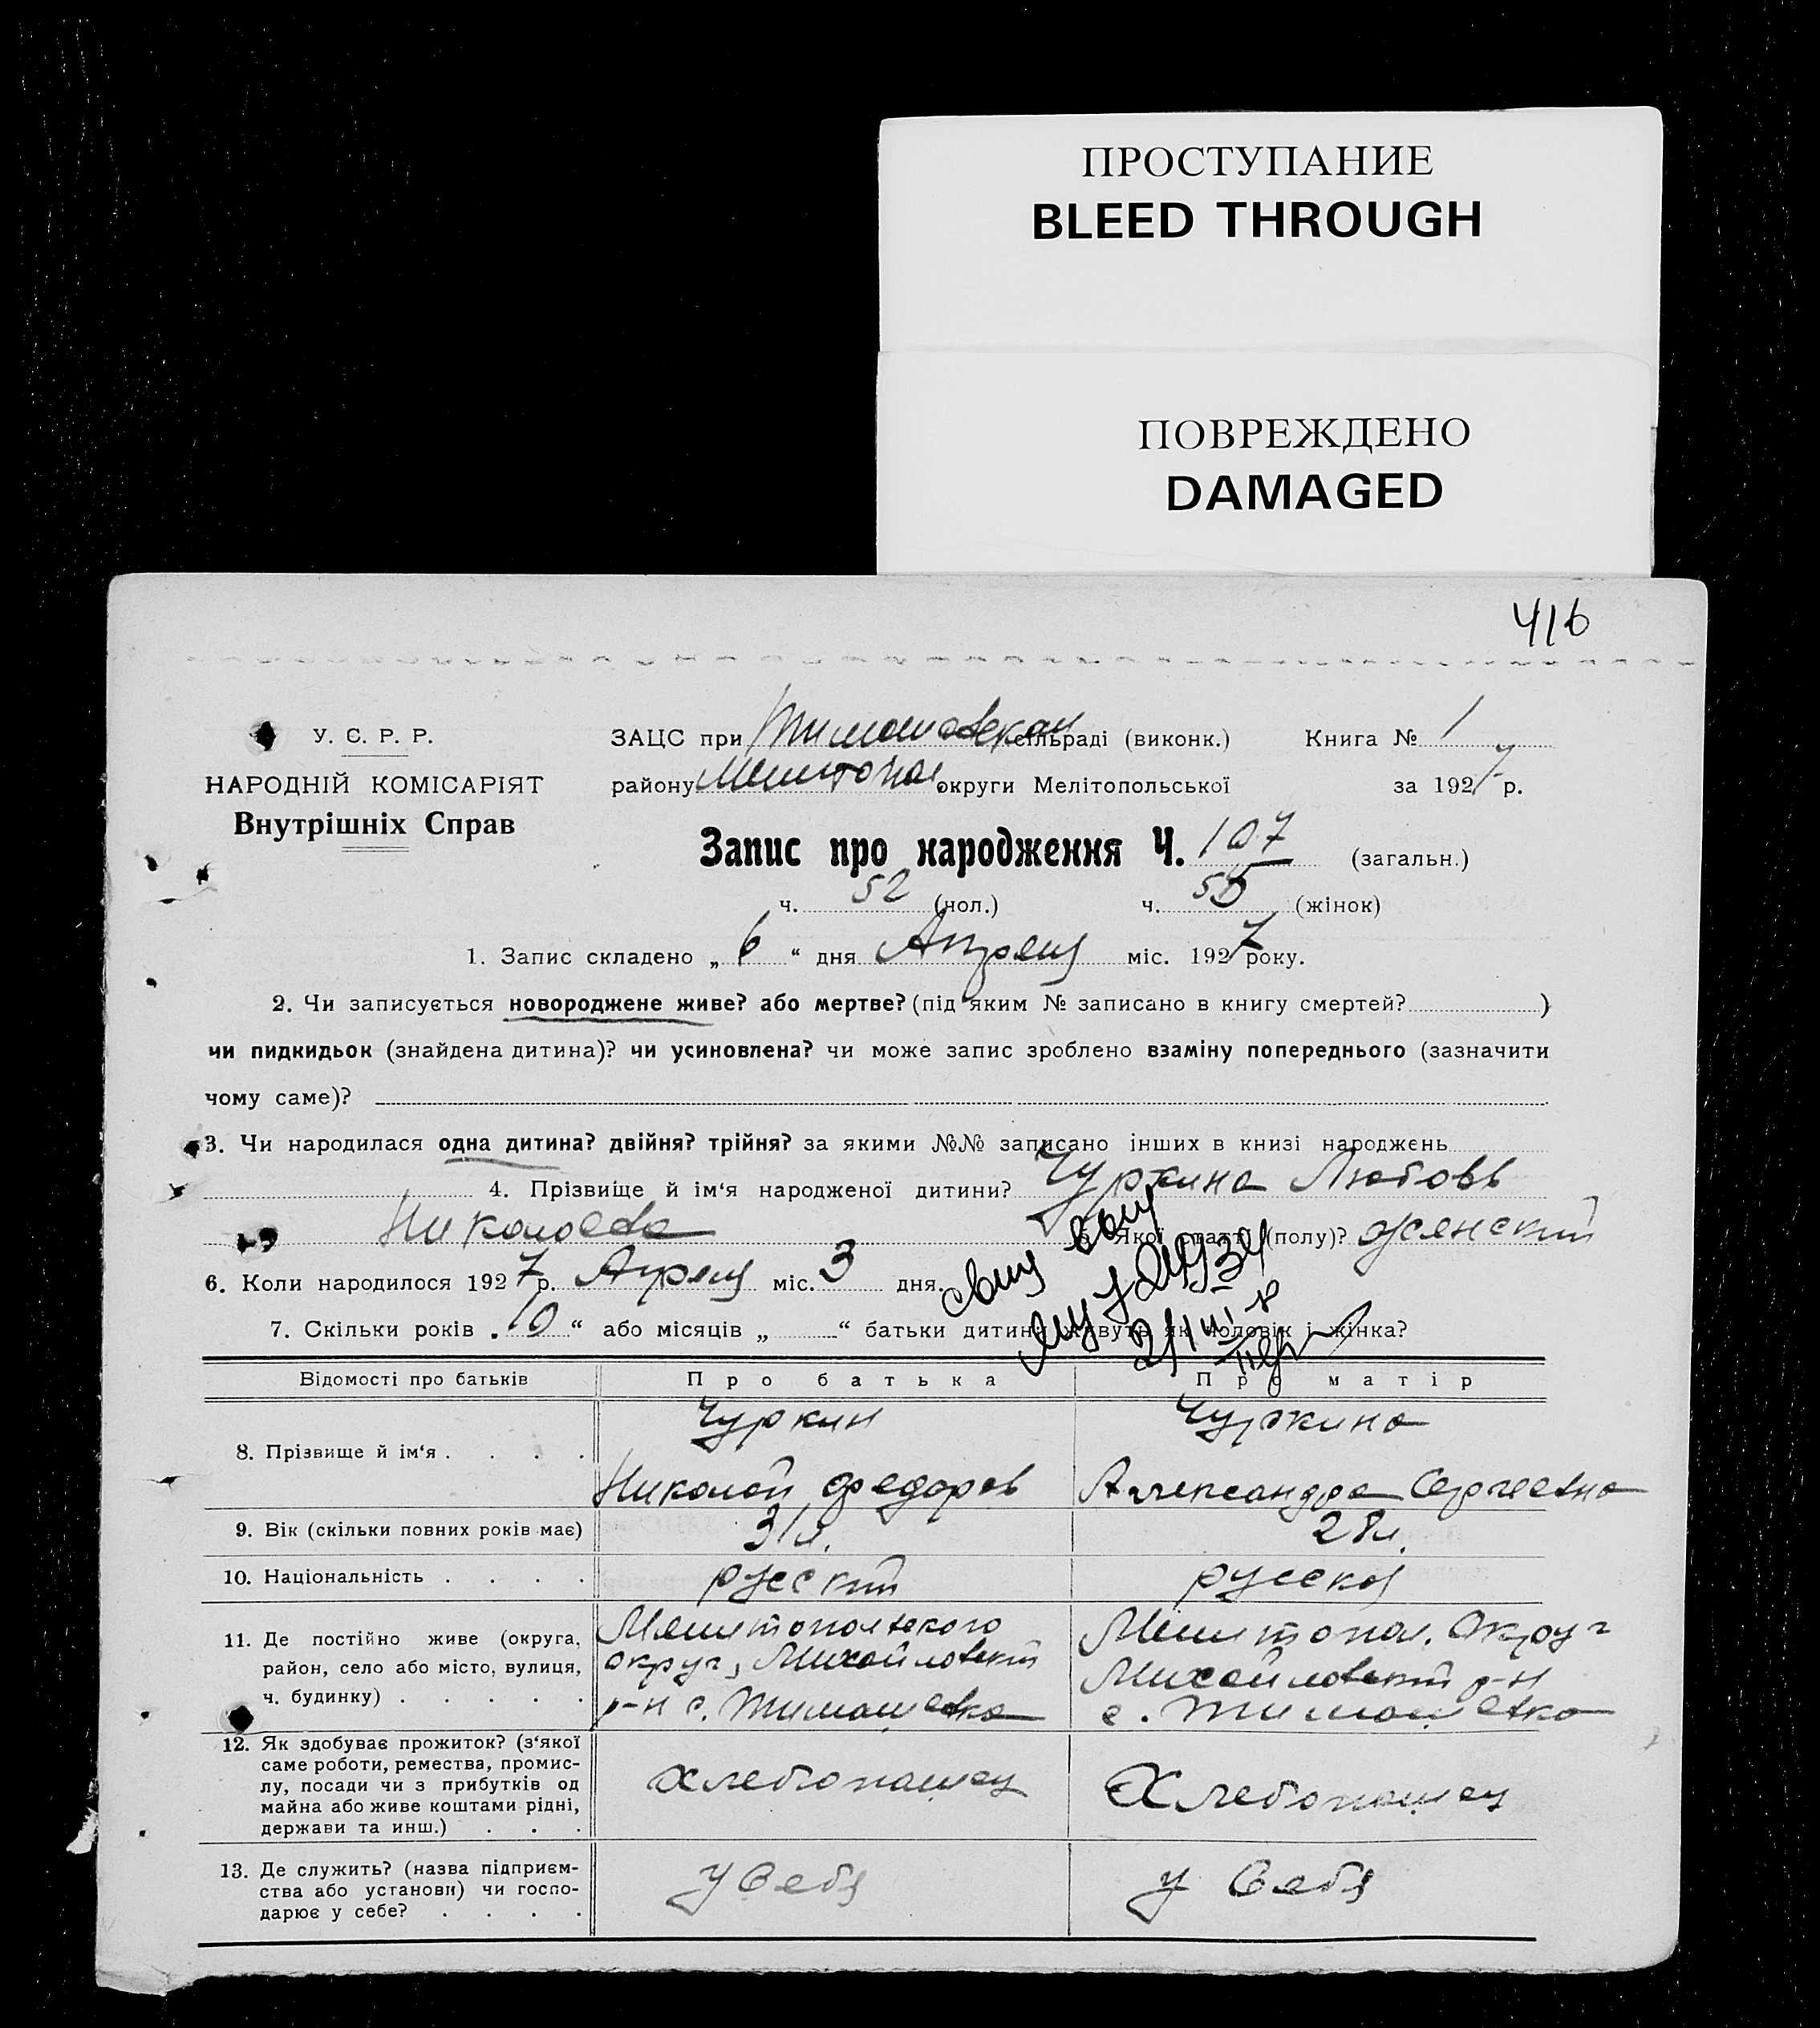 ПРОСТУПАНИЕ
BLEED THROUGH
ПОВРЕЖДЕНО
DAMAGED
416
У. С. Р. Р.
НАРОДНІЙ КОМІСАРІЯТ
Внутрішніх Справ
ЗАЦС при Тимошевском сільраді (виконк.) Книга № 1
району Мелитопол округи Мелітопольської за 1927 р.
Запис про народження Ч. 107 (загальн.)
ч. 52 (чол.) ч. 55 (жінок)
1. Запис складено „ 6 “ дня Апреля міс. 1927 року.
2. Чи записується новороджене живе? або мертве? (під яким № записано в книгу смертей? )
чи пидкидьок (знайдена дитина)? чи усиновлена? чи може запис зроблено взаміну попереднього (зазначити
чому саме)?
3. Чи народилася одна дитина? двійня? трійня? за якими №№ записано інших в книзі народжень
4. Прізвище й ім'я народженої дитини? Чуркина Любовь
Николаевна 5. Якої статті (полу)? женский
6. Коли народилося 1927 р. Апреля міс. 3 дня.
7. Скільки років „ 10 “ або місяців „ “ батьки дитини живуть як чоловік і жінка?
Відомості про батьків Про батька Про матір
8. Прізвище й ім'я . . . . Чуркин Николай Федоров Чуркина Александра Сергеевна
9. Вік (скільки повних років має) 31 л. 28 л.
10. Національність . . . . русский русская
11. Де постійно живе (округа, район, село або місто, вулиця, ч. будинку) . . . . . Мелитопольского округ, Михайловский р-н с. Тимошевка Мелитопол. Округ Михайловский р-н с. Тимошевка
12. Як здобуває прожиток? (з'якої саме роботи, ремества, промислу, посади чи з прибутків од майна або живе коштами рідні, держави та инш.) . . . Хлебопашец Хлебопашец
13. Де служить? (назва підприємства або установи) чи господарює у себе? . . . . у себя у себя